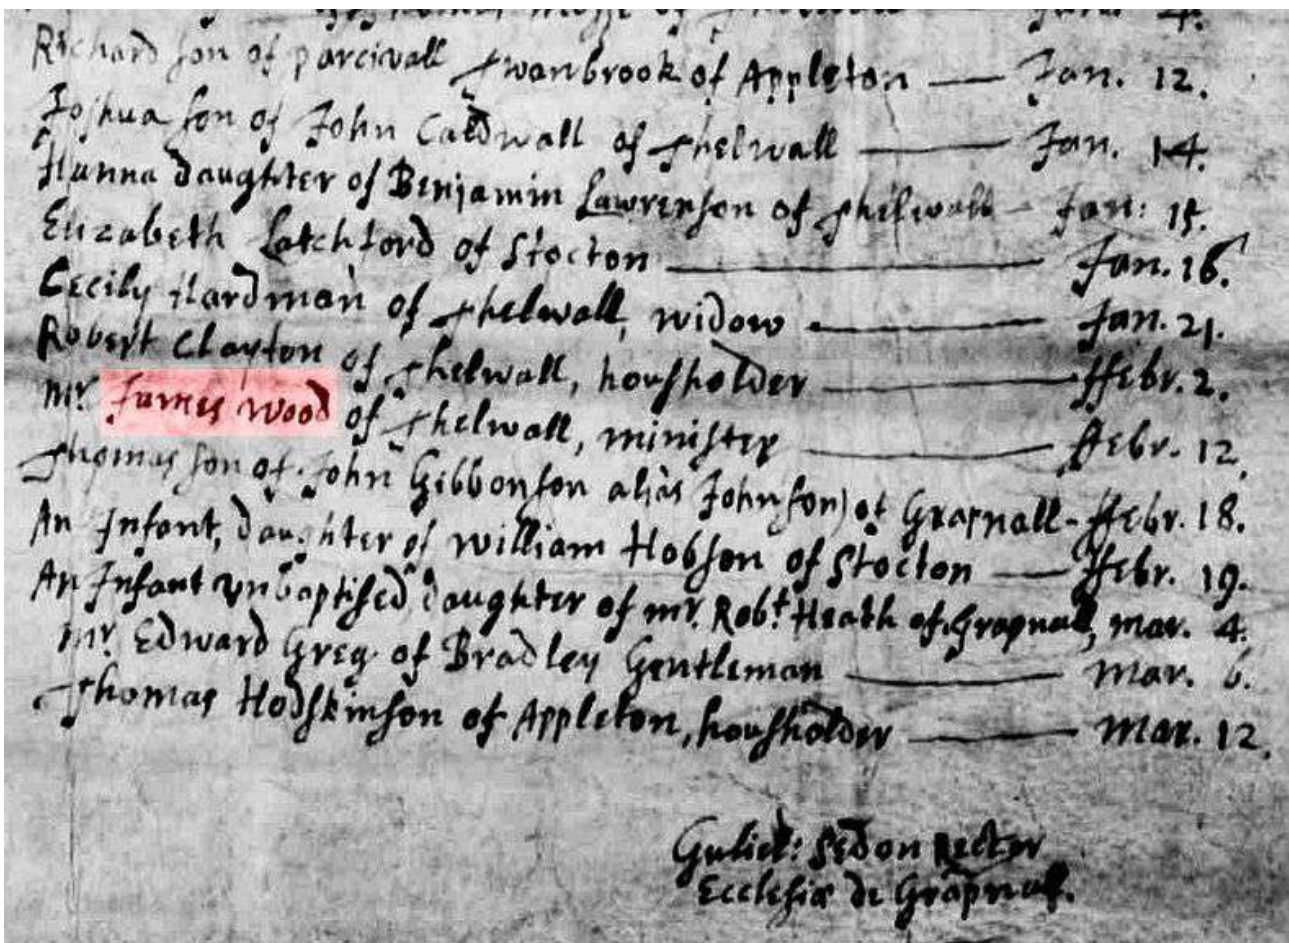 Richard son of parcivall Swanbrook of Appleton — Jan. 12.
Joshua son of John Caldwall of Thelwall — Jan. 14.
Hanna daughter of Benjamin Lawrenson of Thelwall – Jan: 15.
Elizabeth Latchford of Stocton — Jan. 16.
Cecily Hardman of Thelwall, widow — Jan. 21.
Robert Clayton of Thelwall, housholder — ffebr. 2.
mr. James Wood of Thelwall, minister — ffebr. 12.
Thomas son of John Gibbonson alias Johnson) of Grapnall - ffebr. 18.
An Infant, daughter of William Hobson of Stocton — ffebr. 19.
An Infant vnbaptised, daughter of mr. Robt. Heath of Grapnall, mar. 4.
mr. Edward Greg of Bradley Gentleman — mar. 6.
Thomas Hodskinson of Appleton, housholder — mar. 12.
Guliel: Sedon Rector
Ecclesiæ de Grapnall.